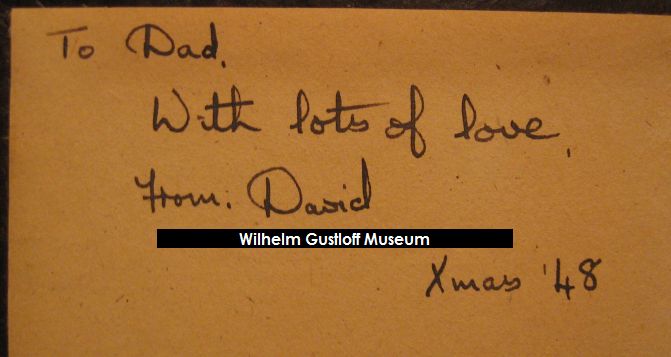 To Dad,
With lots of love,
from. David
Wilhelm Gustloff Museum
Xmas '48